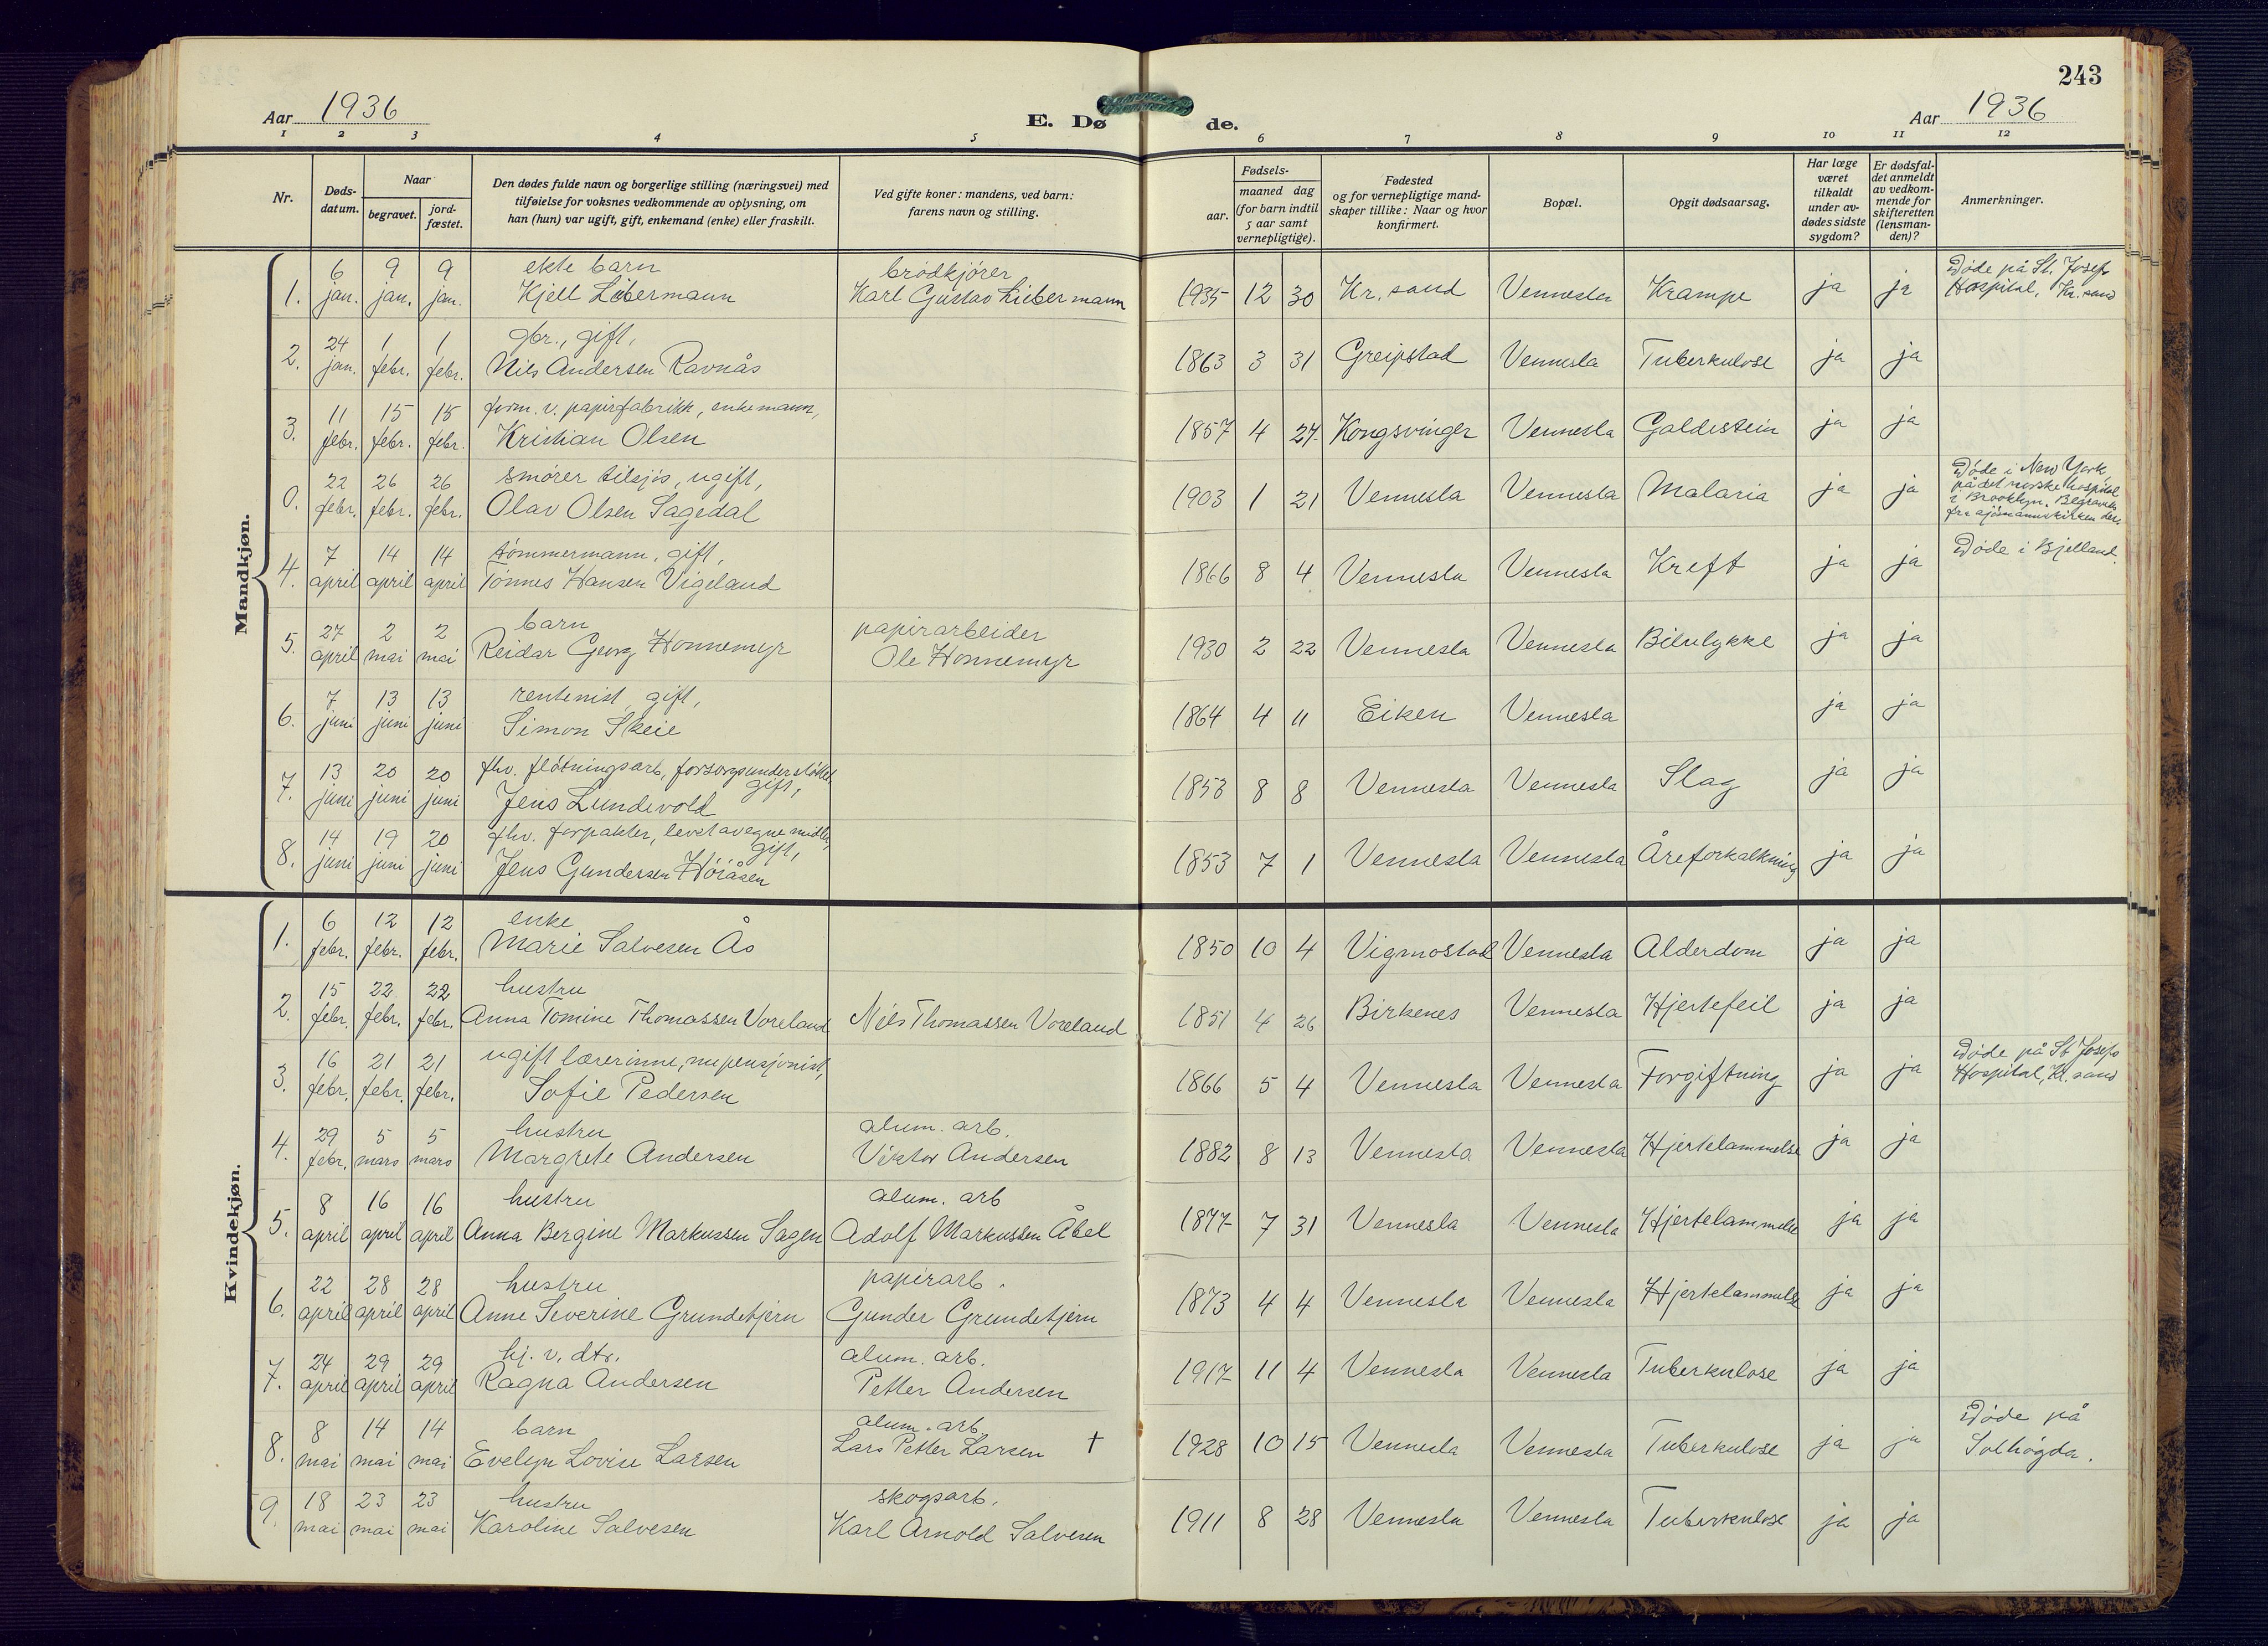 243
Aar 1936
E. Dø de.
Aar 1936
1 2 3 4 5 6 7 8 9 10 11 12
Nr.
Døds-
datum.
Naar
begravet.
jord-
fæstet.
Den dødes fulde navn og borgerlige stilling (næringsvei) med
tilføielse for voksnes vedkommende av oplysning, om
han (hun) var ugift, gift, enkemand (enke) eller fraskilt.
Ved gifte koner: mandens, ved barn:
farens navn og stilling.
Fødsels-
aar.
maaned dag
(for barn indtil
5 aar samt
vernepligtige).
Fødested
og for vernepligtige mand-
skaper tillike: Naar og hvor
konfirmert.
Bopæl.
Opgit dødsaarsag.
Har læge
været
tilkaldt
under av-
dødes sidste
sygdom?
Er dødsfal-
det anmeldt
av vedkom-
mende for
skifteretten
(lensman-
den)?
Anmerkninger.
Mandkjøn.
6 9 9 ekte barn brødkjører Døde på St. Josefs
1. jan. jan. jan. Kjell Libermann Karl Gustav Liebermann 1935 12 30 Kr. sand Vennesla Krampe ja ja Hospital, Kr. sand
24 1 1 gbr., gift,
2. jan. febr. febr. Nils Andersen Ravnås 1863 3 31 Greipstad Vennesla Tuberkulose ja ja
11 15 15 form. v. papirfabrikk, enkemann,
3. febr. febr. febr. Kristian Olsen 1857 4 27. Kongsvinger Vennesla Galdestein ja ja
22 26 26 smører tilsjøs, ugift, Døde i New York
0. febr. febr. febr. Olav Olsen Sagedal 1903 1 21 Vennesla Vennesla Malaria ja ja på det norske hospital
i Brooklyn. Begravet
fra sjømannskirken der.
7 14 14 tømmermann, gift,
4. april april april Tønnes Hansen Vigeland 1866 8 4 Vennesla Vennesla Kreft ja ja Døde i Bjelland.
27 2 2 barn papirarbeider
5. april mai mai Reidar Georg Honnemyr Ole Honnemyr 1930 2 22 Vennesla Vennesla Bilulykke ja ja
7 13 13 rentenist, gift,
6. juni juni juni Simon Skeie 1864 4 11 Eiken Vennesla ja ja
13 20 20 fhv. fløtningsarb, forsorgsunderstøttet,
gift,
7. juni juni juni Jens Lundevold 1853 8 8 Vennesla Vennesla Slag ja ja
14 19 20 fhv. forpakter, levet av egne midler,
gift,
8. juni juni juni Jens Gundersen Høiåsen 1853 7 1 Vennesla Vennesla Åreforkalkning ja ja
Kvindekjøn.
6 12 12 enke
1. febr. febr. febr. Marie Salvesen Ås 1850 10 4 Vigmostad Vennesla Alderdom ja ja
15 22 22 hustru
2. febr. febr. febr. Anna Tomine Thomassen Voreland Nils Thomassen Voreland 1851 4 26 Birkenes Vennesla Hjertefeil ja ja
16 21 21 ugift lærerinne, nu pensjonist, Døde på St Josefs
3. febr. febr. febr. Sofie Pedersen 1866 5 4 Vennesla Vennesla Forgiftning ja ja Hospital, Kr. sand
29 5 5 hustru alum. arb.
4. febr. mars mars Margrete Andersen Viktor Andersen 1882 8 13 Vennesla Vennesla Hjertelammelse ja ja
8 16 16 hustru alum. arb
5. april april april Anna Bergine Markussen Sagen Adolf Markussen Åbel 1877 7 31 Vennesla Vennesla Hjertelammelse ja ja
22 28 28 hustru papirarb.
6. april april april Anne Severine Grundetjern Gunder Grundetjern 1873 4 4 Vennesla Vennesla Hjertelammelse ja ja
24 29 29 hj. v. dtr. alum. arb.
7. april april april Ragna Andersen Petter Andersen 1917 11 4 Vennesla Vennesla Tuberkulose ja ja
8 14 14 barn alum. arb. Døde på
8. mai mai mai Evelyn Lovise Larsen Lars Petter Larsen † 1928 10 15 Vennesla Vennesla Tuberkulose ja ja Solhøgda.
18 23 23 hustru skogsarb.
9. mai mai mai Karoline Salvesen Karl Arnold Salvesen 1911 8 28 Vennesla Vennesla Tuberkulose ja ja